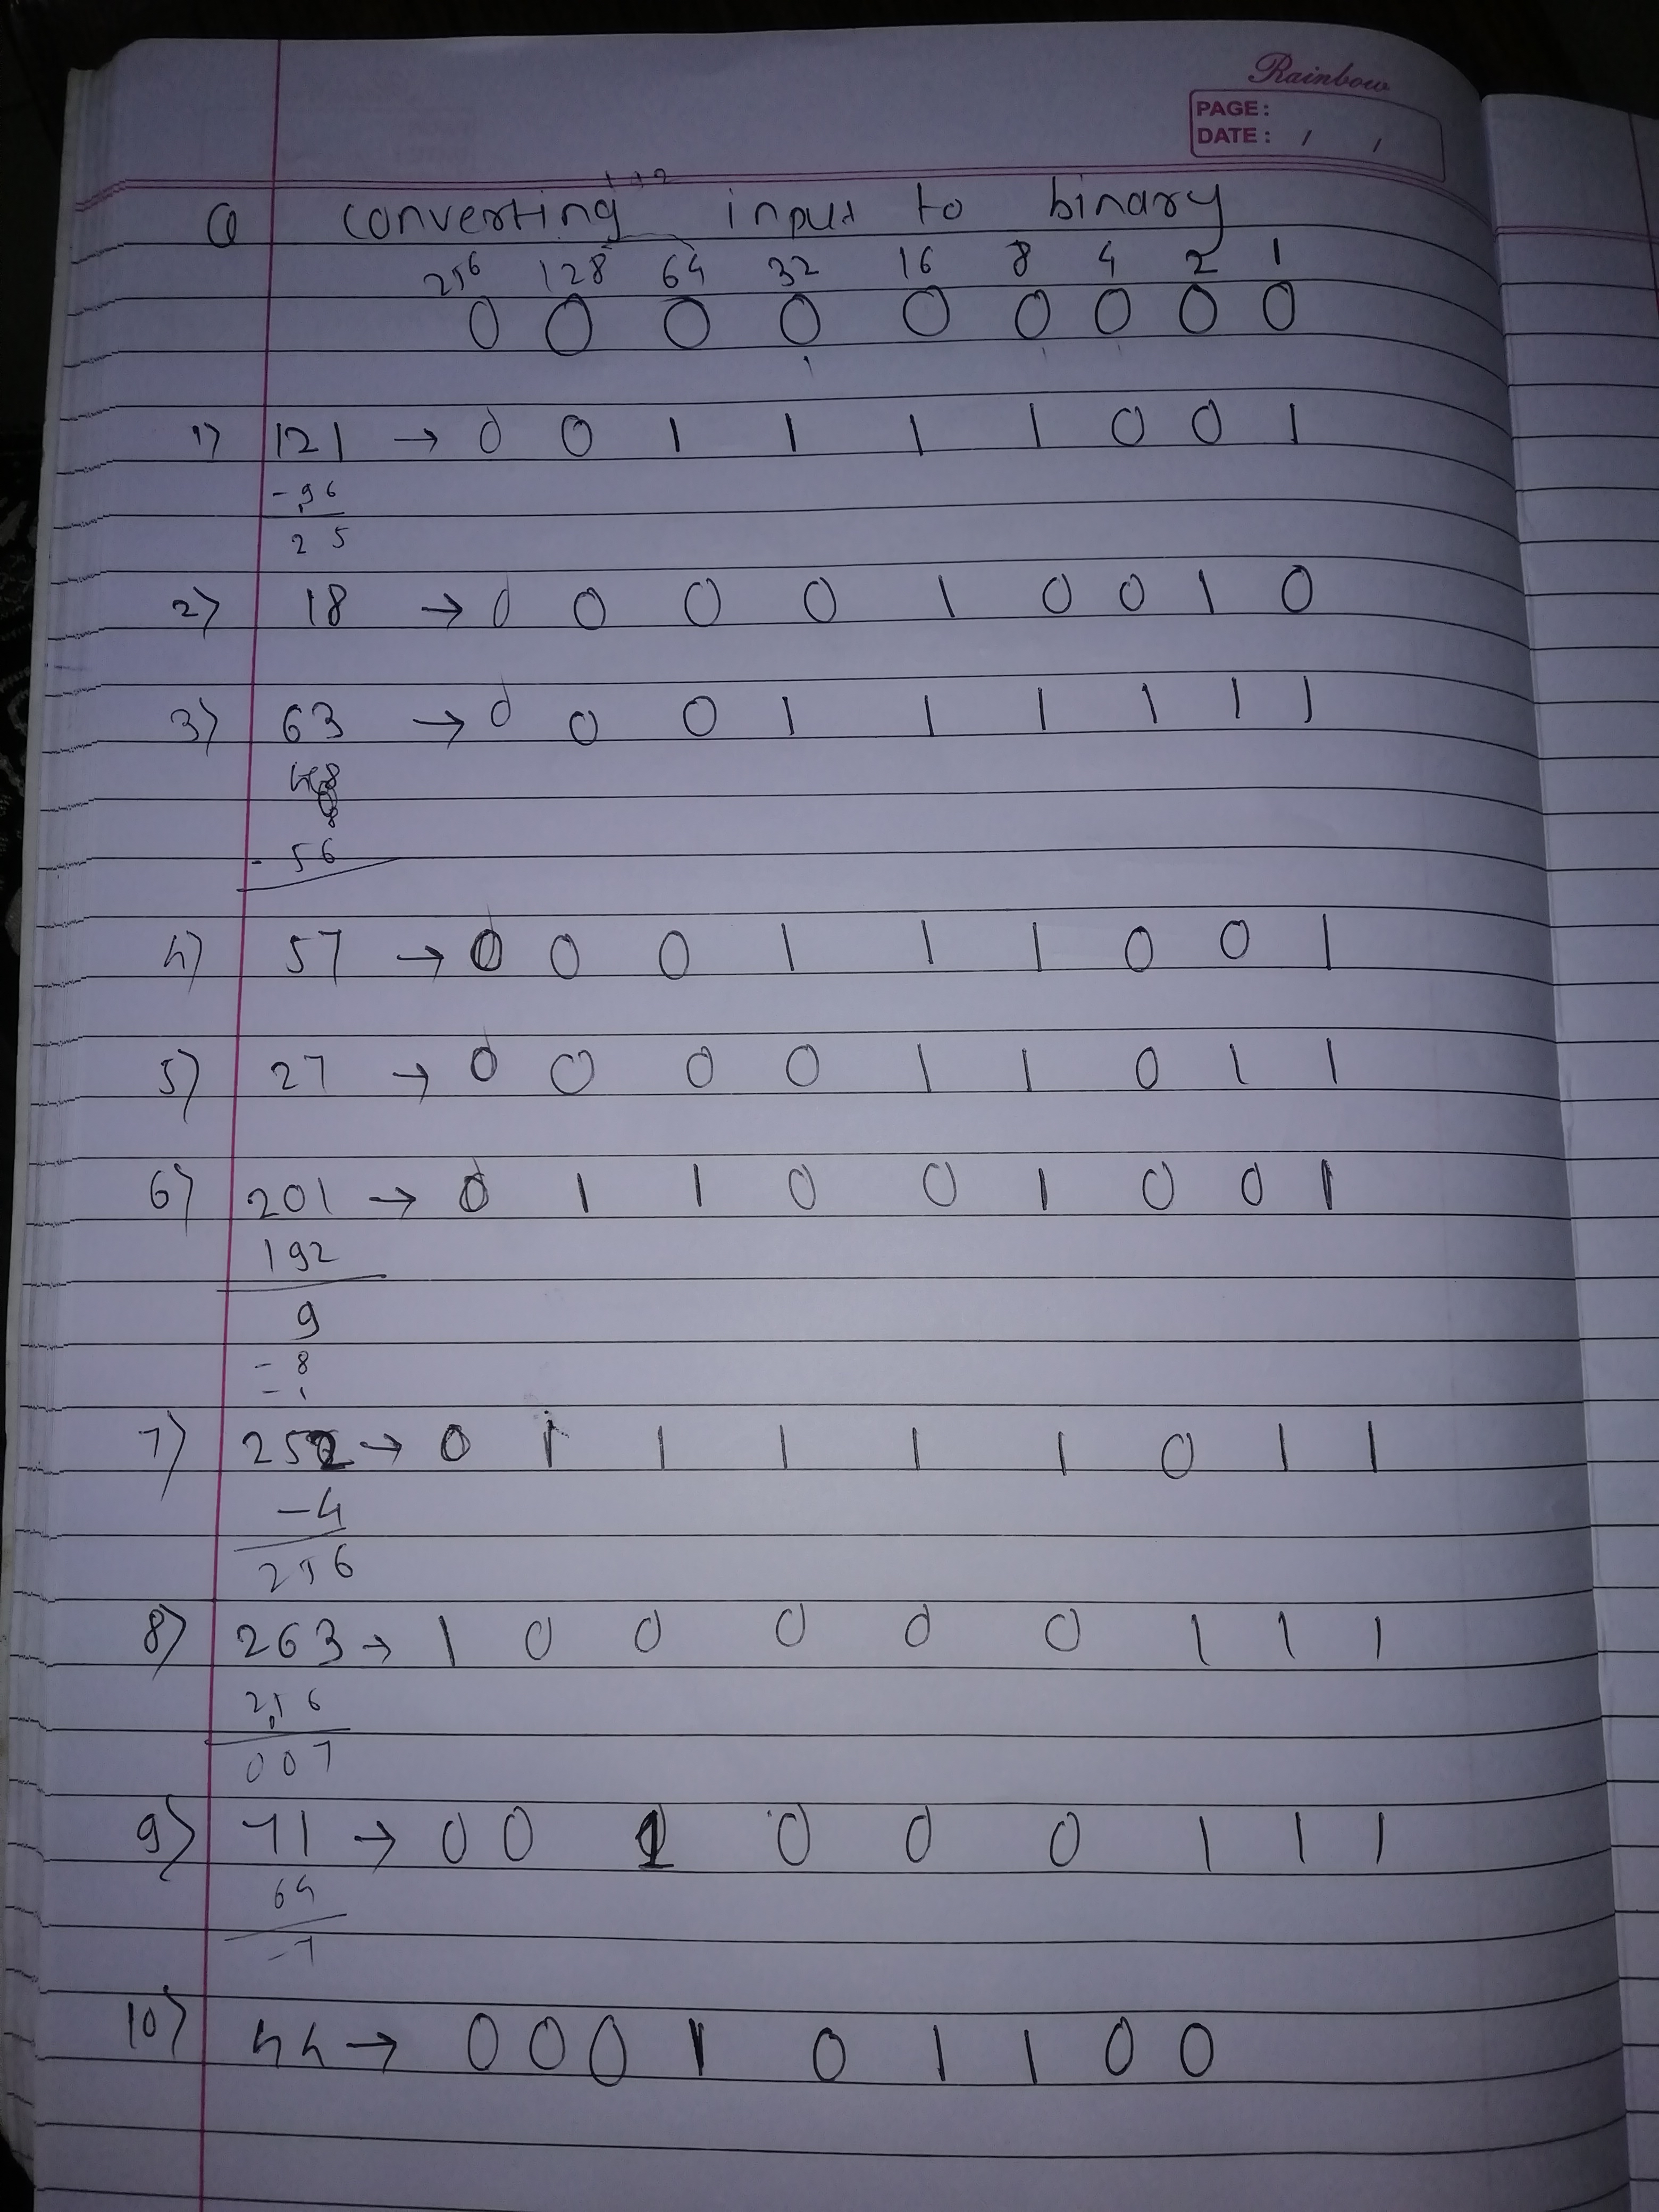 Rainbow
PAGE:
DATE: / /
Q converting input to binary
256 128 64 32 16 8 4 2 1
0 0 0 0 0 0 0 0 0
1) 121 → 0 0 1 1 1 1 0 0 1
- 96
2 5
2) 18 → 0 0 0 0 1 0 0 1 0
3) 63 → 0 0 0 1 1 1 1 1 1
- 56
4) 57 → 0 0 0 1 1 1 0 0 1
5) 27 → 0 0 0 0 1 1 0 1 1
6) 201 → 0 1 1 0 0 1 0 0 1
192
9
- 8
- 1
7) 252 → 0 1 1 1 1 1 0 1 1
- 4
256
8) 263 → 1 0 0 0 0 0 1 1 1
256
007
9) 71 → 0 0 1 0 0 0 1 1 1
64
- 7
10) 44 → 0 0 0 1 0 1 1 0 0